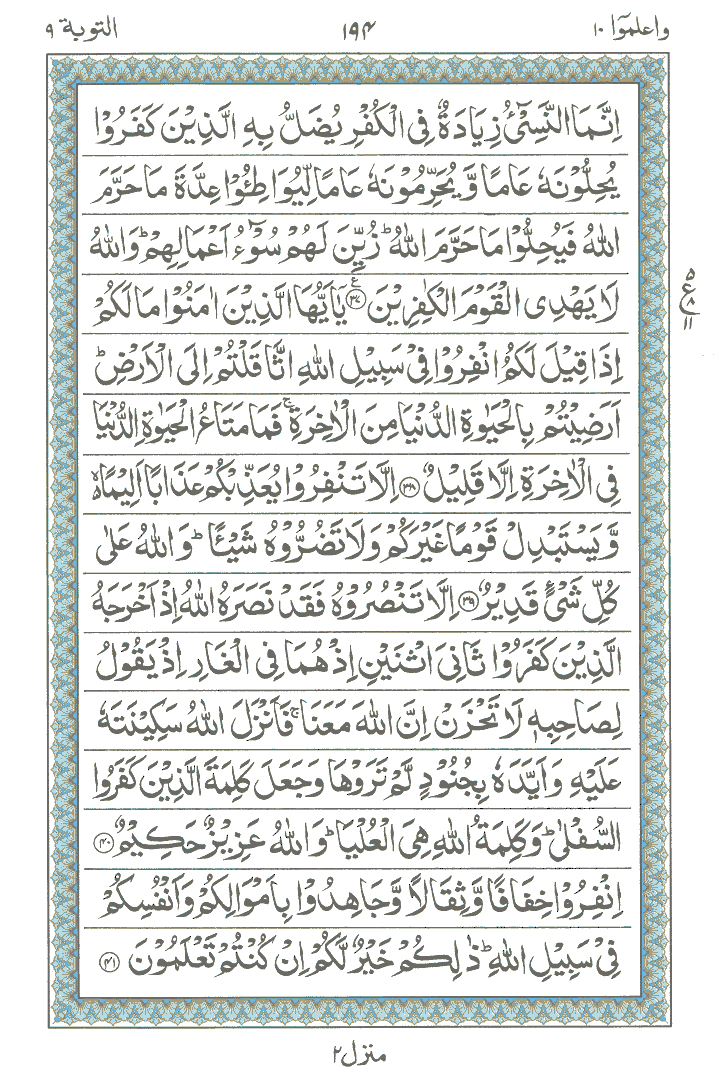 واعلموٓا ١٠ ١٩۴ التوبة ٩
اِنَّمَا النَّسِیْٓءُ زِیَادَةٌ فِی الْكُفْرِ یُضَلُّ بِهِ الَّذِیْنَ كَفَرُوْا
یُحِلُّوْنَهٗ عَامًا وَّ یُحَرِّمُوْنَهٗ عَامًا لِّیُوَاطِـُٔوْا عِدَّةَ مَا حَرَّمَ
اللّٰهُ فَیُحِلُّوْا مَا حَرَّمَ اللّٰهُ ؕ زُیِّنَ لَهُمْ سُوْٓءُ اَعْمَالِهِمْ ؕ وَاللّٰهُ
لَا یَهْدِی الْقَوْمَ الْكٰفِرِیْنَ ۟ع ﴿۳۷﴾ یٰۤاَیُّهَا الَّذِیْنَ اٰمَنُوْا مَا لَكُمْ
اِذَا قِیْلَ لَكُمُ انْفِرُوْا فِیْ سَبِیْلِ اللّٰهِ اثَّاقَلْتُمْ اِلَی الْاَرْضِ ؕ
اَرَضِیْتُمْ بِالْحَیٰوةِ الدُّنْیَا مِنَ الْاٰخِرَةِ ۚ فَمَا مَتَاعُ الْحَیٰوةِ الدُّنْیَا
فِی الْاٰخِرَةِ اِلَّا قَلِیْلٌ ﴿۳۸﴾ اِلَّا تَنْفِرُوْا یُعَذِّبْكُمْ عَذَابًا اَلِیْمًا ۙ۬
وَّ یَسْتَبْدِلْ قَوْمًا غَیْرَكُمْ وَلَا تَضُرُّوْهُ شَیْـًٔا ؕ وَاللّٰهُ عَلٰی
كُلِّ شَیْءٍ قَدِیْرٌ ﴿۳۹﴾ اِلَّا تَنْصُرُوْهُ فَقَدْ نَصَرَهُ اللّٰهُ اِذْ اَخْرَجَهُ
الَّذِیْنَ كَفَرُوْا ثَانِیَ اثْنَیْنِ اِذْ هُمَا فِی الْغَارِ اِذْ یَقُوْلُ
لِصَاحِبِهٖ لَا تَحْزَنْ اِنَّ اللّٰهَ مَعَنَا ۚ فَاَنْزَلَ اللّٰهُ سَكِیْنَتَهٗ
عَلَیْهِ وَ اَیَّدَهٗ بِجُنُوْدٍ لَّمْ تَرَوْهَا وَجَعَلَ كَلِمَةَ الَّذِیْنَ كَفَرُوا
السُّفْلٰی ؕ وَكَلِمَةُ اللّٰهِ هِیَ الْعُلْیَا ؕ وَاللّٰهُ عَزِیْزٌ حَكِیْمٌ ﴿۴۰﴾
اِنْفِرُوْا خِفَافًا وَّ ثِقَالًا وَّ جَاهِدُوْا بِاَمْوَالِكُمْ وَ اَنْفُسِكُمْ
فِیْ سَبِیْلِ اللّٰهِ ؕ ذٰلِكُمْ خَیْرٌ لَّكُمْ اِنْ كُنْتُمْ تَعْلَمُوْنَ ﴿۴۱﴾
۵
ع۸
۱۱
منزل ۲